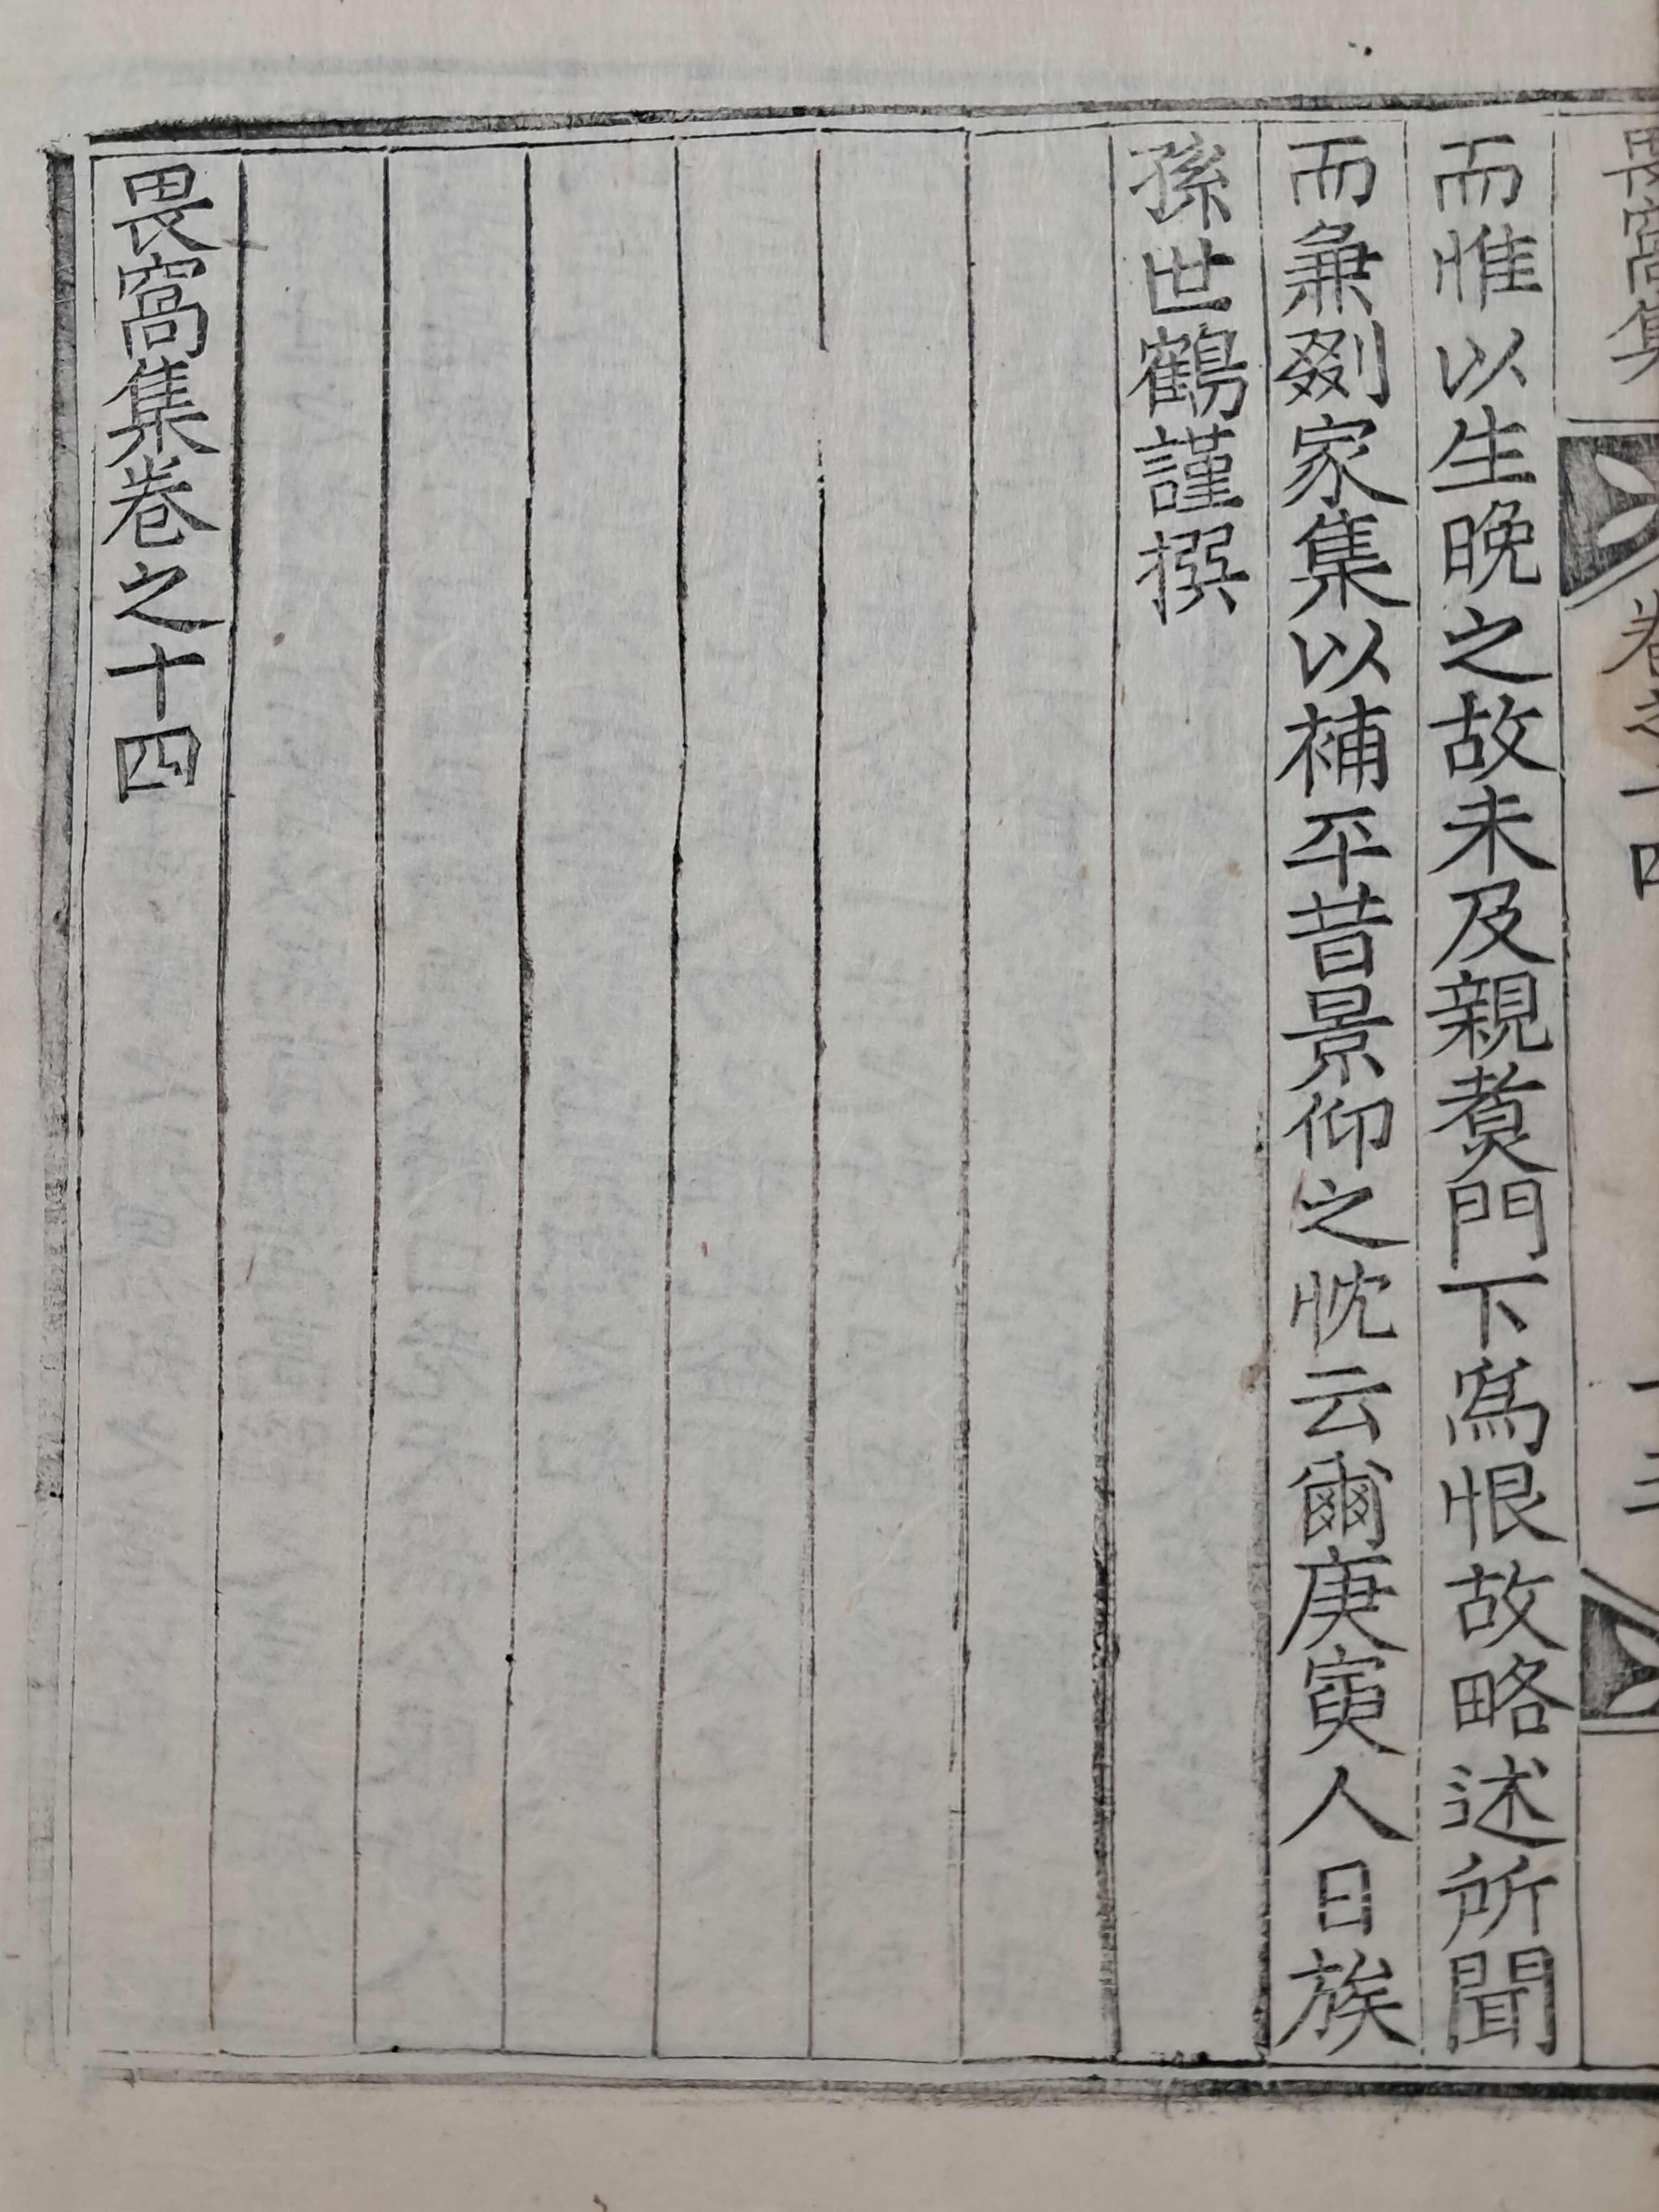 畏窩集 卷之十四 十三
而惟以生晚之故未及親炙門下爲恨故略述所聞
而兼剟家集以補平昔景仰之忱云爾庚寅人日族
孫世鶴謹撰
畏窩集卷之十四